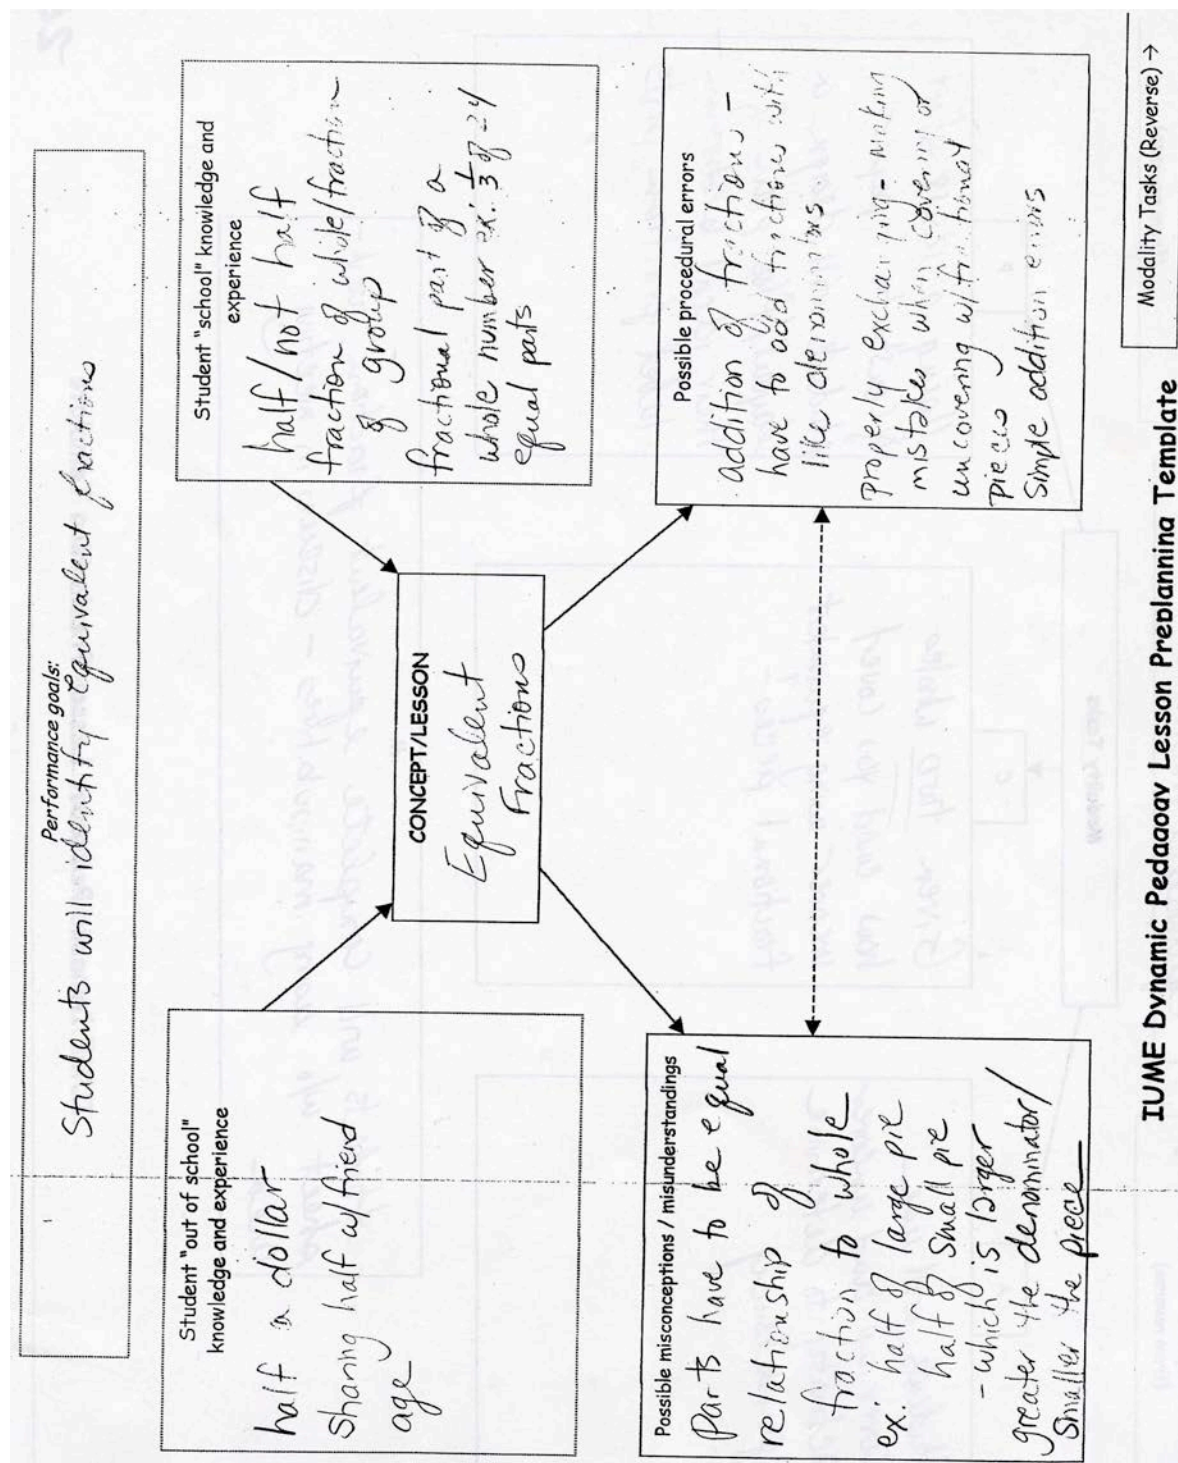 Performance goals:
Students will identify equivalent fractions
Student "out of school"
knowledge and experience
half a dollar
Sharing half w/friend
age
Student "school" knowledge and
experience
half/not half
fraction of whole/fraction
of group
fractional part of a
whole number ex: 1/3 of 24
equal parts
CONCEPT/LESSON
Equivalent
Fractions
Possible misconceptions / misunderstandings
Parts have to be equal
relationship of
fraction to whole
ex: half of large pie
half of small pie
- which is larger
greater the denominator/
smaller the piece
Possible procedural errors
addition of fractions -
have to add fractions with
like denominators
properly exchanging - making
mistakes when covering or
uncovering w/fractional
pieces
Simple addition errors
IUME Dynamic Pedagogy Lesson Preplanning Template
Modality Tasks (Reverse) →